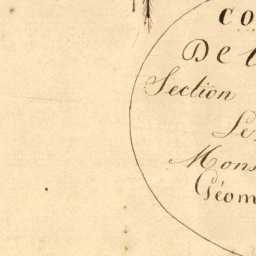 CO
De
Section
Le
Mons
Géom